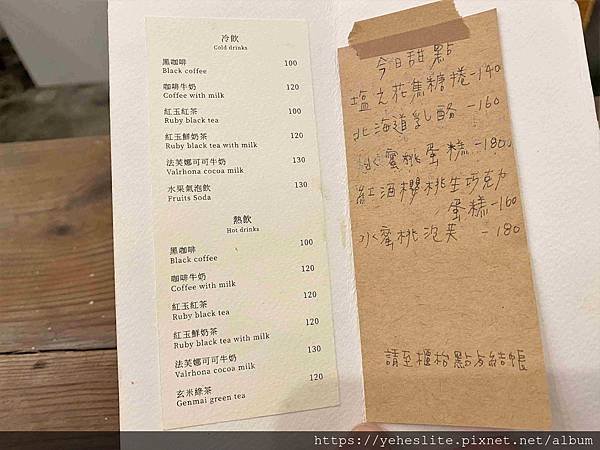 冷飲
Cold drinks
黑咖啡 100
Black coffee
咖啡牛奶 120
Coffee with milk
紅玉紅茶 100
Ruby black tea
紅玉鮮奶茶 120
Ruby black tea with milk
法芙娜可可牛奶 130
Valrhona cocoa milk
水果氣泡飲 130
Fruits Soda
熱飲
Hot drinks
黑咖啡 100
Black coffee
咖啡牛奶 120
Coffee with milk
紅玉紅茶 120
Ruby black tea
紅玉鮮奶茶 120
Ruby black tea with milk
法芙娜可可牛奶 130
Valrhona cocoa milk
玄米綠茶 120
Genmai green tea
今日甜點
塩之花焦糖捲-140
北海道乳酪-160
水蜜桃蛋糕-180
紅酒櫻桃生巧克力
蛋糕-160
水蜜桃泡芙 -180
請至櫃枱點與結帳
https://yeheslite.pixnet.net/album